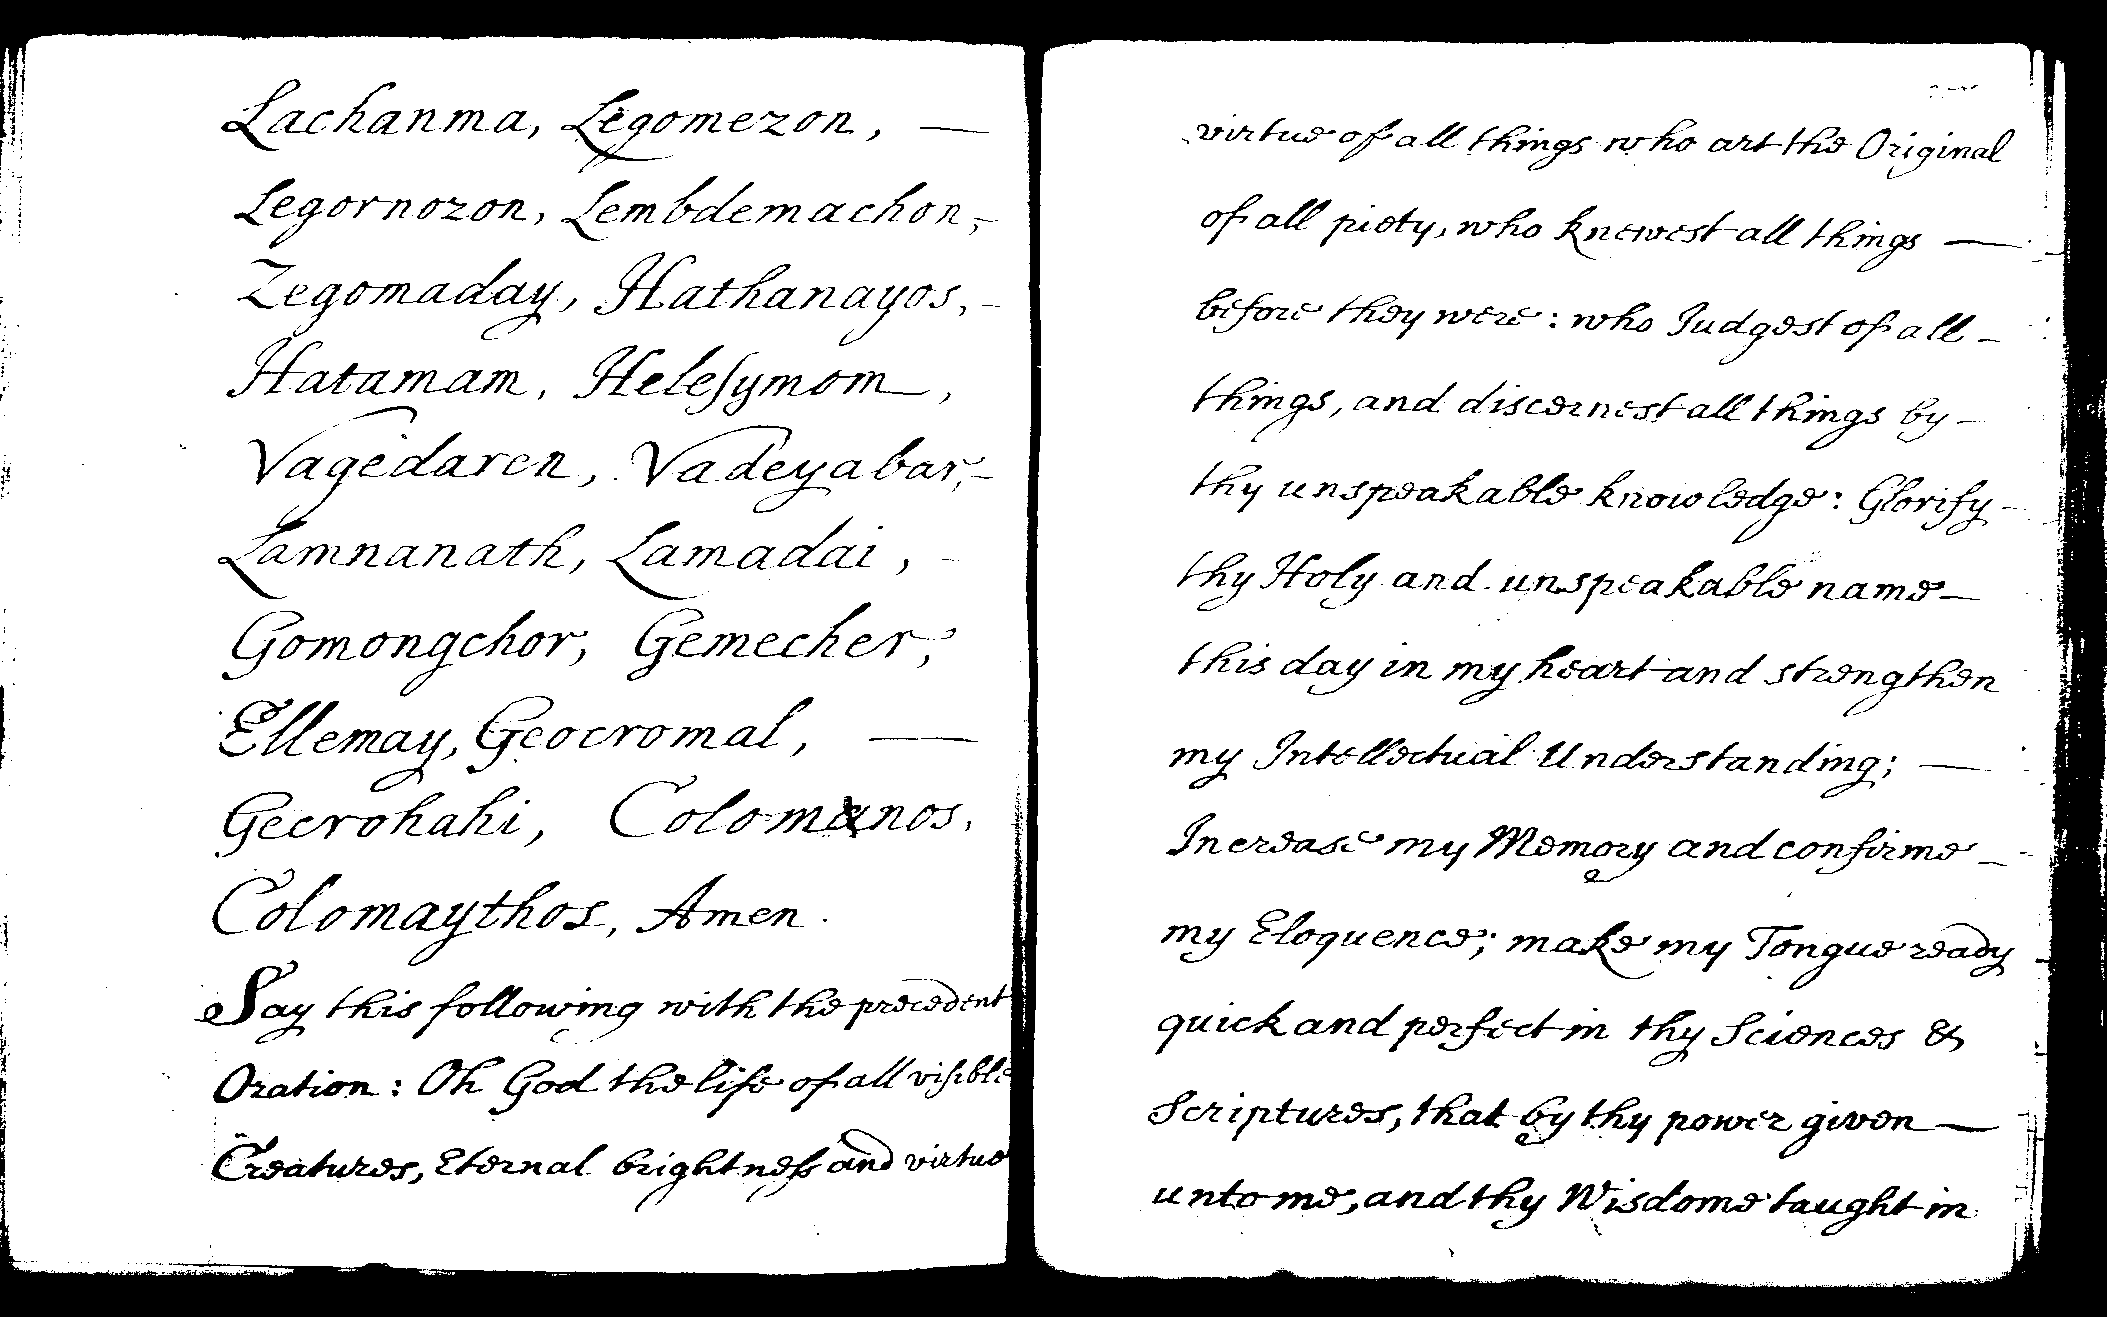 Lachanma, Legomezon, —
Legornozon, Lembdemachon, -
Zegomaday, Hathanayos, -
Hatamam, Heleſymom,
Vagedaren, Vadeyabar, -
Lamnanath, Lamadai, -
Gomongchor, Gemecher,
Ellemay, Geocromal, —
Gecrohahi, Colomanos,
Colomaythos, Amen.
Say this following with the precedent
Oration: Oh God the life of all viſible
Creatures, Eternal brightneſs and virtue
virtue of all things who art the Original
of all piety, who knewest all things —
before they were: who Judgest of all -
things, and discernest all things by -
thy unspeakable knowledge: Glorify -
thy Holy and unspeakable name -
this day in my heart and strengthen
my Intellectual Understanding; —
Increase my Memory and confirme -
my Eloquence; make my Tongue ready
quick and perfect in thy Sciences &
Scriptures, that by thy power given —
unto me, and thy Wisdome taught in